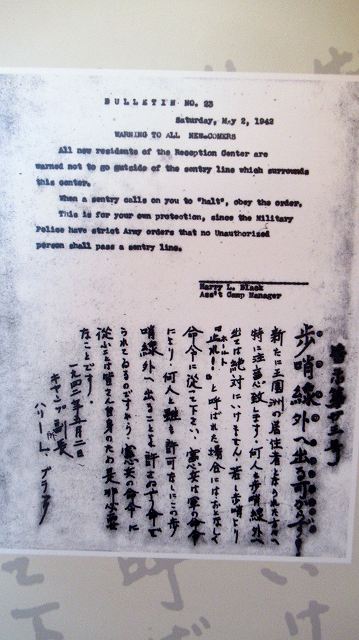 BULLETIN NO. 23
Saturday, May 2, 1942
WARNING TO ALL NEW-COMERS
All new residents of the Reception Center are
warned not to go outside of the sentry line which surrounds
this center.
When a sentry calls on you to "halt", obey the order.
This is for your own protection, since the Military
Police have strict Army orders that no Unauthorized
person shall pass a sentry line.
Harry L. Black
Ass't Camp Manager
歩哨線外へ出る可からず！
新たに の居住者となられた方々へ
特に注意致します。何人も歩哨線外へ
出ては絶対にいけません。若し歩哨より
「止れ！」と呼ばれた場合にはおとなしく
命令に従って下さい。憲兵は軍の命令
により何人と雖も許可なしにこの歩
哨線外へ出ることを許さゞる命令
られてゐるのですから、憲兵の命令に
従ふことは皆さん自身のため是非必要
なことです。
一九四二年五月二日
キャンプ副長
ハリー・L・ブラック